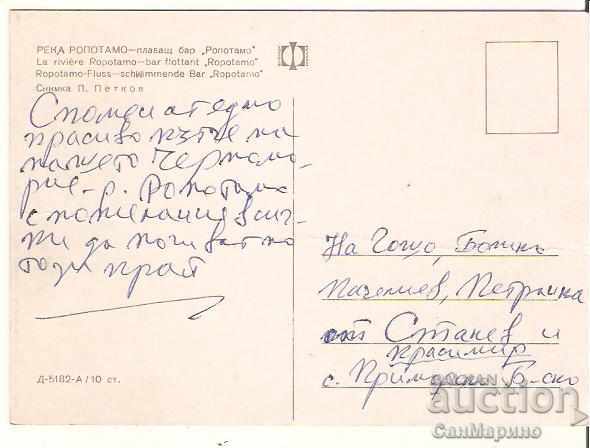 РЕКА РОПОТАМО—плаващ бар „Ропотамо“
La rivière Ropotamo—bar flottant „Ropotamo“
Ropotamo-Fluss—schwimmende Bar „Ropotamo“
Снимка П. Петков
Спомен от едно
красиво кътче на
нашето Черномо-
рие - р. Ропотамо
с пожелания всич-
ки да почиват по
този край
На Гошо,
Пачелиев, Петранка
от Станев и
Красимир
с. Приморско Б-ско
Д-5182-А / 10 ст.
BALKAN
auction
СанМарино